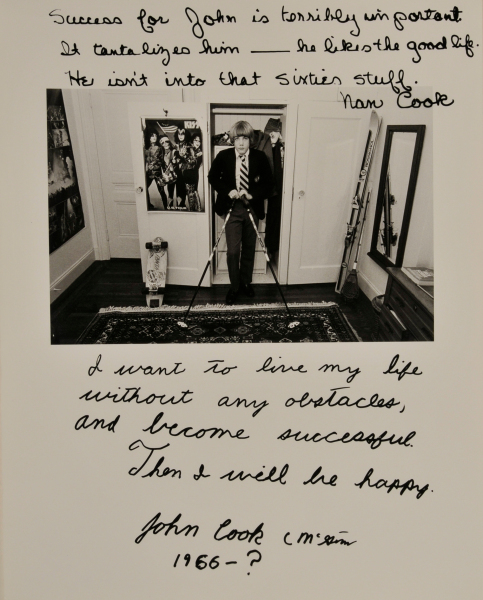 Success for John is terribly important.
It tantalizes him — he likes the good life.
He isn't into that sixties stuff.
Nan Cook
I want to live my life
without any obstacles,
and become successful.
Then I will be happy.
John Cook
1966 – ?